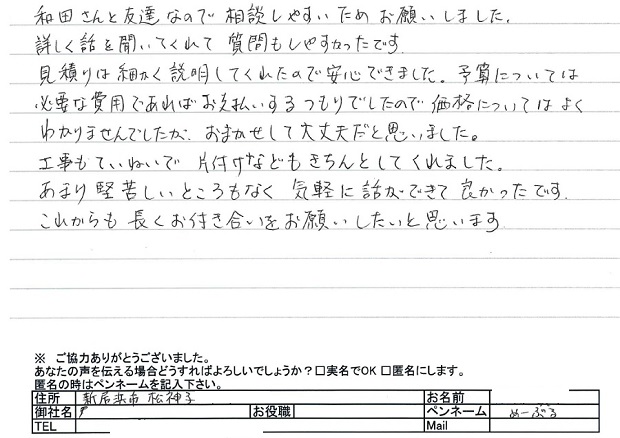 和田さんと友達なので相談しやすいためお願いしました。
詳しく話を聞いてくれて質問もしやすかったです。
見積りは細かく説明してくれたので安心できました。予算については
必要な費用であればお支払いするつもりでしたので価格についてはよく
わかりませんでしたが、おまかせして大丈夫だと思いました。
工事もていねいで片付けなどもきちんとしてくれました。
あまり堅苦しいところもなく気軽に話ができて良かったです。
これからも長くお付き合いをお願いしたいと思います
※ ご協力ありがとうございました。
あなたの声を伝える場合どうすればよろしいでしょうか？□実名でOK □匿名にします。
匿名の時はペンネームを記入下さい。
住所 新居浜市 松神子 お名前
御社名 お役職 ペンネーム めーぷる
TEL Mail